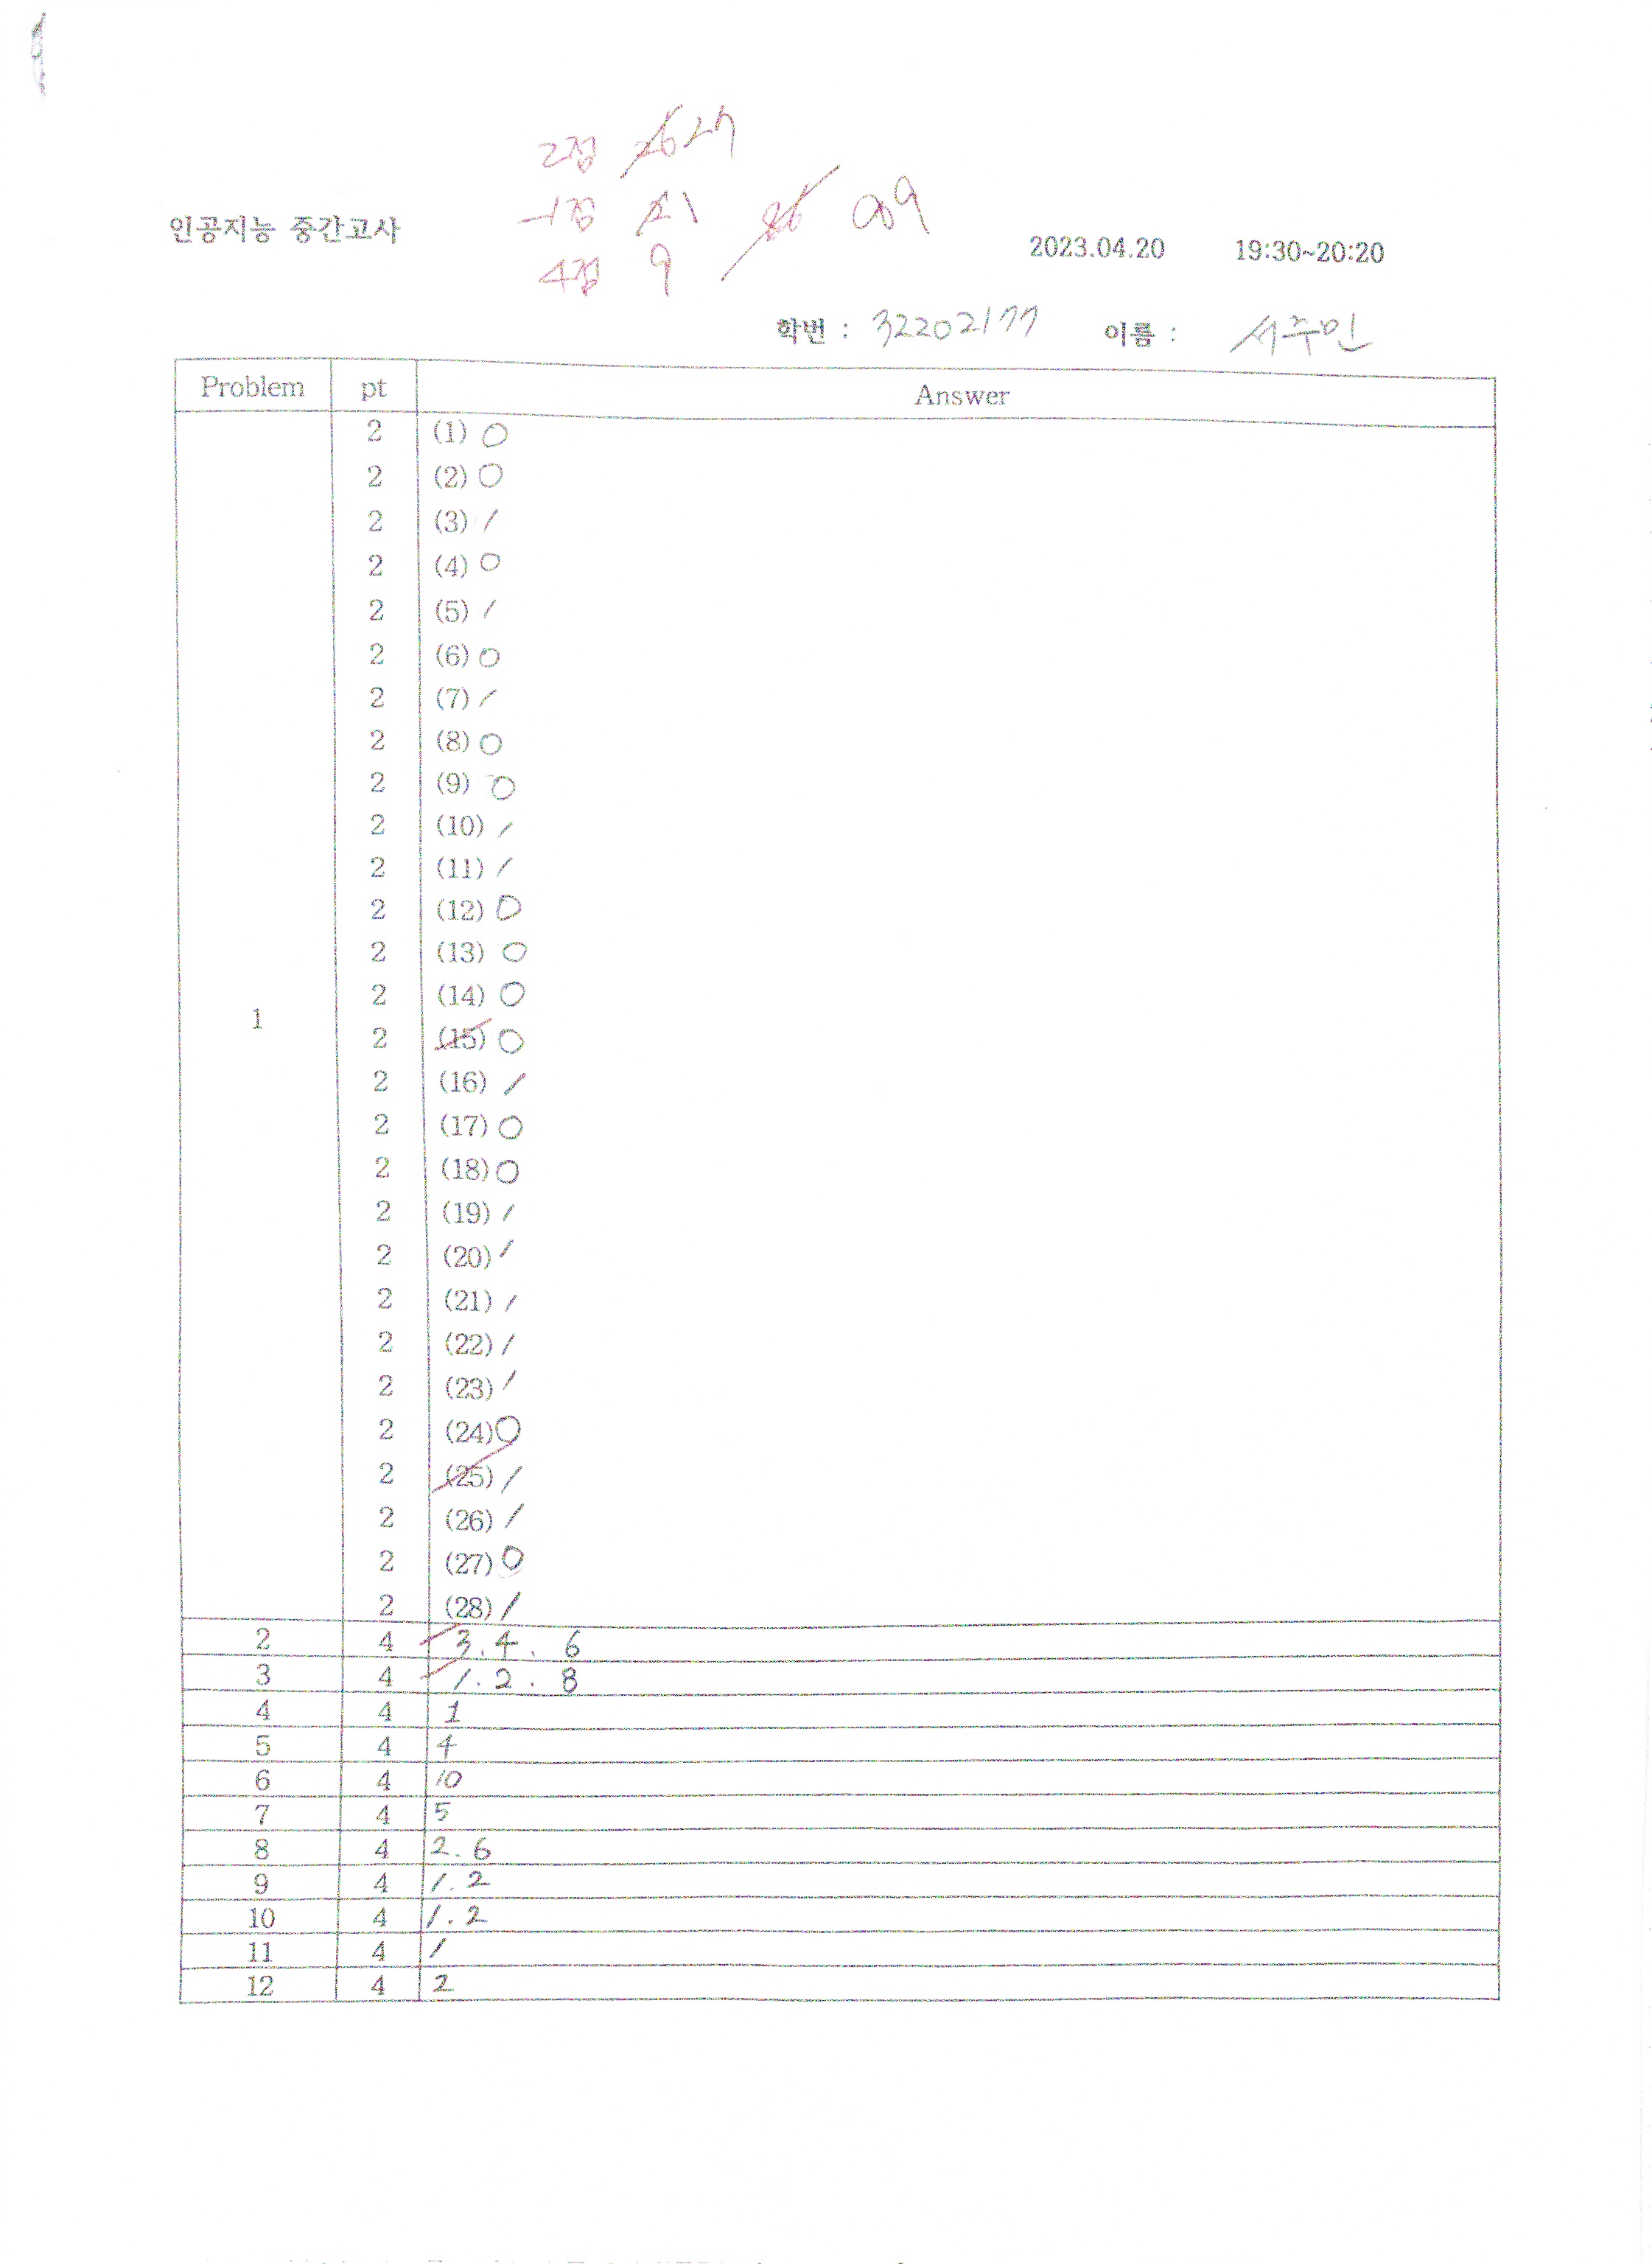 2점 26 27
-1점 21 86 89
4점 9
인공지능 중간고사
2023.04.20 19:30~20:20
학번 : 32202177 이름 : 서주민
Problem pt Answer
1
2 (1) O
2 (2) O
2 (3) /
2 (4) O
2 (5) /
2 (6) O
2 (7) /
2 (8) O
2 (9) O
2 (10) /
2 (11) /
2 (12) O
2 (13) O
2 (14) O
2 (15) O
2 (16) /
2 (17) O
2 (18) O
2 (19) /
2 (20) /
2 (21) /
2 (22) /
2 (23) /
2 (24) O
2 (25) /
2 (26) /
2 (27) O
2 (28) /
2 4 3. 4. 6
3 4 1. 2. 8
4 4 1
5 4 4
6 4 10
7 4 5
8 4 2. 6
9 4 1. 2
10 4 1. 2
11 4 /
12 4 2